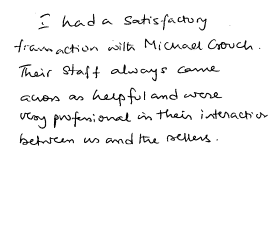 I had a satisfactory
transaction with Michael Crouch.
Their staff always came
across as helpful and were
very professional in their interaction
between us and the sellers.